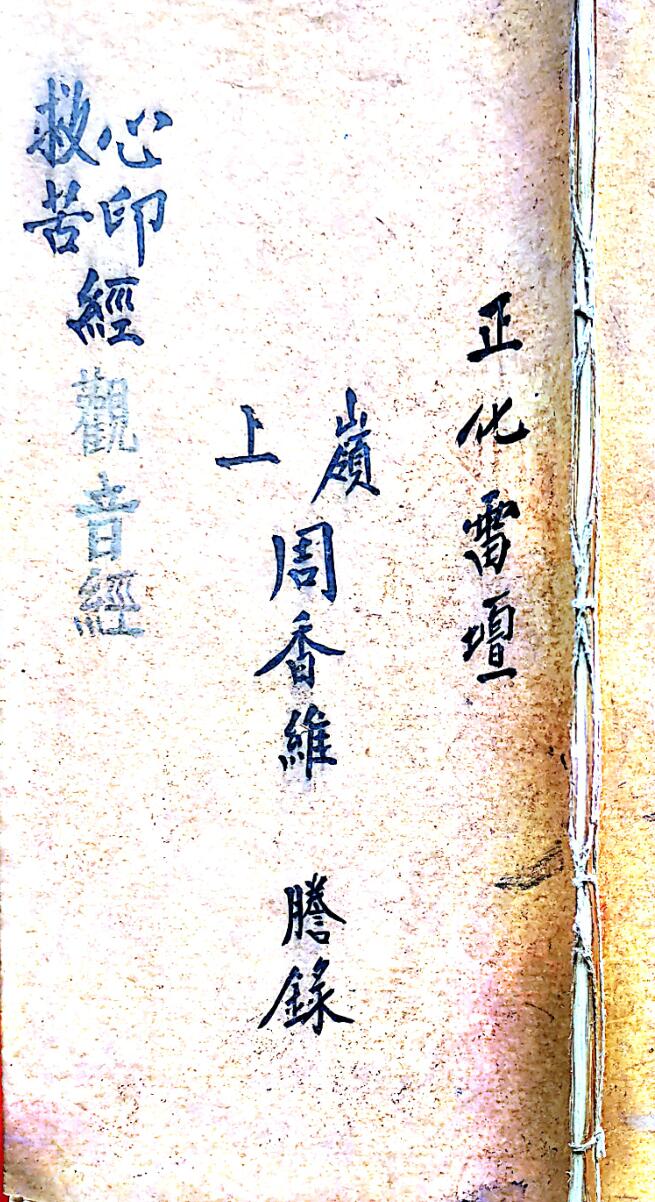 正化雷壇
嶺上周香維 謄錄
心印救苦經觀音經